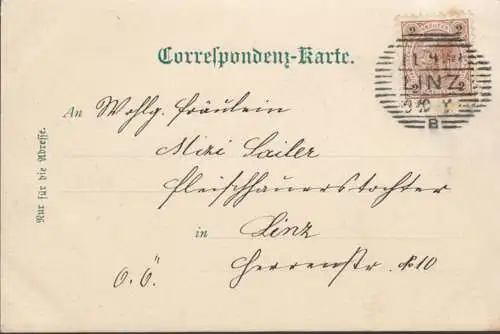 Correspondenz-Karte.
2 2
LINZ
2 2
B
An Wohlg. Fräulein
Mizi Sailer
Fleischhauerstochter
in Linz
O. Ö. Herrenstr. No 10
Nur für die Adresse.